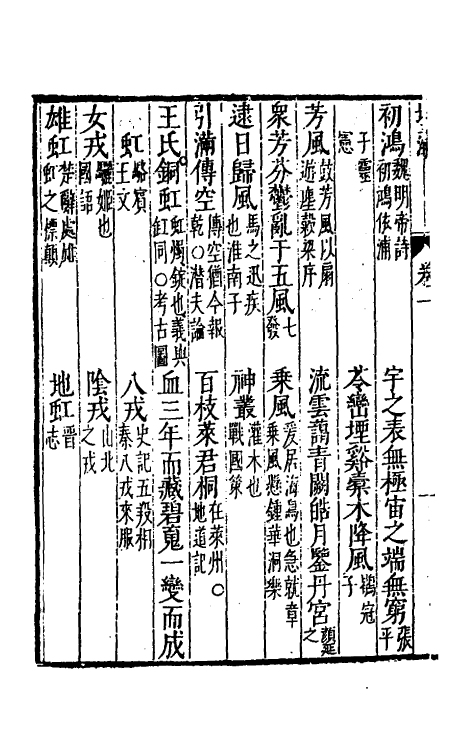 卷一
初鴻魏明帝詩初鴻依浦
宇之表無極宙之端無窮張平
子靈憲
苓巒堙谿橐木降風鶡冠子
芳風鼓芳風以扇遊塵穀梁序
流雲藹青闕皓月鑒丹宮顏延之
衆芳芬鬱亂于五風七發
乘風爰居海鳥也急就章乘風懸鍾華洞樂
逮日歸風馬之迅疾也淮南子
神叢灌木也戰國策
引滿傳空傳空猶今報乾○潛夫論
百枝萊君桐在萊州○地道記
王氏銅虹虹燭錠也義與釭同○考古圖
血三年而藏碧䰟一變而成
虹駱賓王文
八戎史記五羖相秦八戎來服
女戎驪姬也國語
陰戎山北之戎
雄虹楚辭處雌虹之標顛
地虹晉志